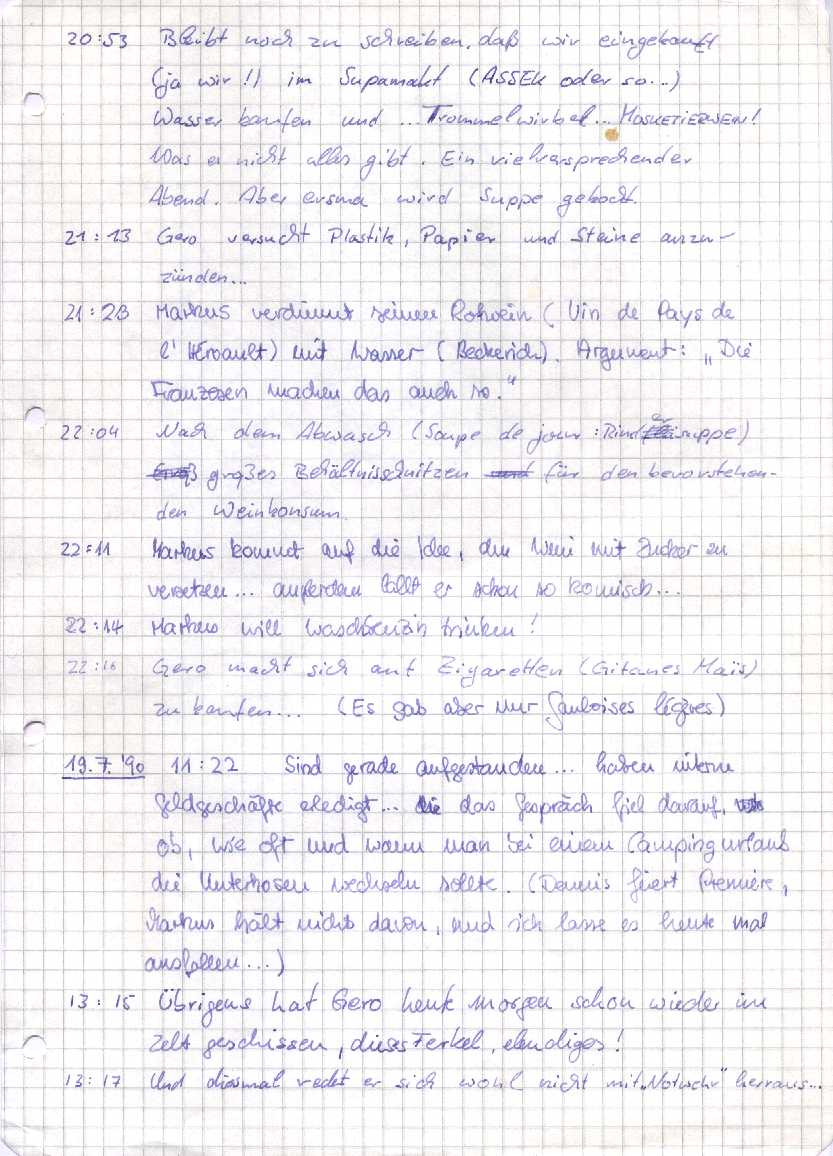 20:53 Bleibt noch zu schreiben, daß wir eingekauft
(ja wir!!) im Supamakt (ASSEK oder so...)
Wasser kaufen und ... Trommelwirbel... MUSKETIERWEIN!
Was es nicht alles gibt. Ein vielversprechender
Abend. Aber ersma wird Suppe gekocht.
21:13 Gero versucht Plastik, Papier und Steine anzu-
zünden...
21:28 Markus verdünnt seinen Rotwein (Vin de Pays de
l'Héroault) mit Wasser (Beckerich). Argument: „Die
Franzosen machen das auch so."
22:04 Nach dem Abwasch (Soupe de jour: Rindersuppe)
großes Behältnisschnitzen für den bevorstehen-
den Weinkonsum.
22:11 Markus kommt auf die Idee, den Wein mit Zucker zu
versetzen... außerdem lallt er schon so komisch...
22:14 Markus will Waschbenzin trinken!
22:16 Gero macht sich auf Zigaretten (Gitanes Maïs)
zu kaufen... (Es gab aber nur Gauloises légères)
19.7.'90 11:22 Sind gerade aufgestanden... haben interne
Geldgeschäfte eledigt... das Gespräch fiel darauf,
ob, wie oft und wann man bei einem Campingurlaub
die Unterhosen wechseln sollte. (Dennis feiert Première,
Markus hält nichts davon, und ich lasse es heute mal
ausfallen...)
13:15 Übrigens hat Gero heute morgen schon wieder im
Zelt geschissen, dieses Ferkel, elendiges!
13:17 Und diesmal redet er sich wohl nicht mit „Notwehr" herraus...